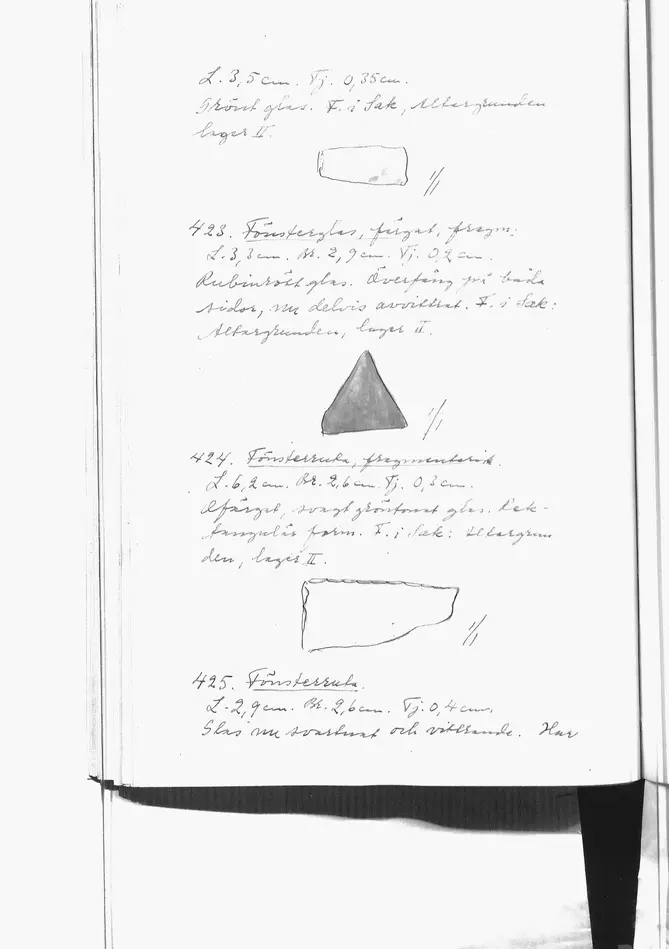 L. 3,5 cm. Tj. 0,35 cm.
Grönt glas. F. i Sak, Altargrunden
lager II.
1/1
423. Fönsterglas, färgat, fragm.
L. 3,3 cm. Br. 2,9 cm. Tj. 0,2 cm.
Rubinrött glas. Överfång på båda
sidor, nu delvis avvittrat. F. i Sak:
Altargrunden, lager II.
1/1
424. Fönsterruta, fragmentarisk.
L. 6,2 cm. Br. 2,6 cm. Tj. 0,3 cm.
Ofärgat, svagt gröntonat glas. Rek-
tangulär form. F. i Sak: Altargrun
den, lager II.
1/1
425. Fönsterruta.
L. 2,9 cm. Br. 2,6 cm. Tj. 0,4 cm.
Glas nu svartnat och vittrande. Har